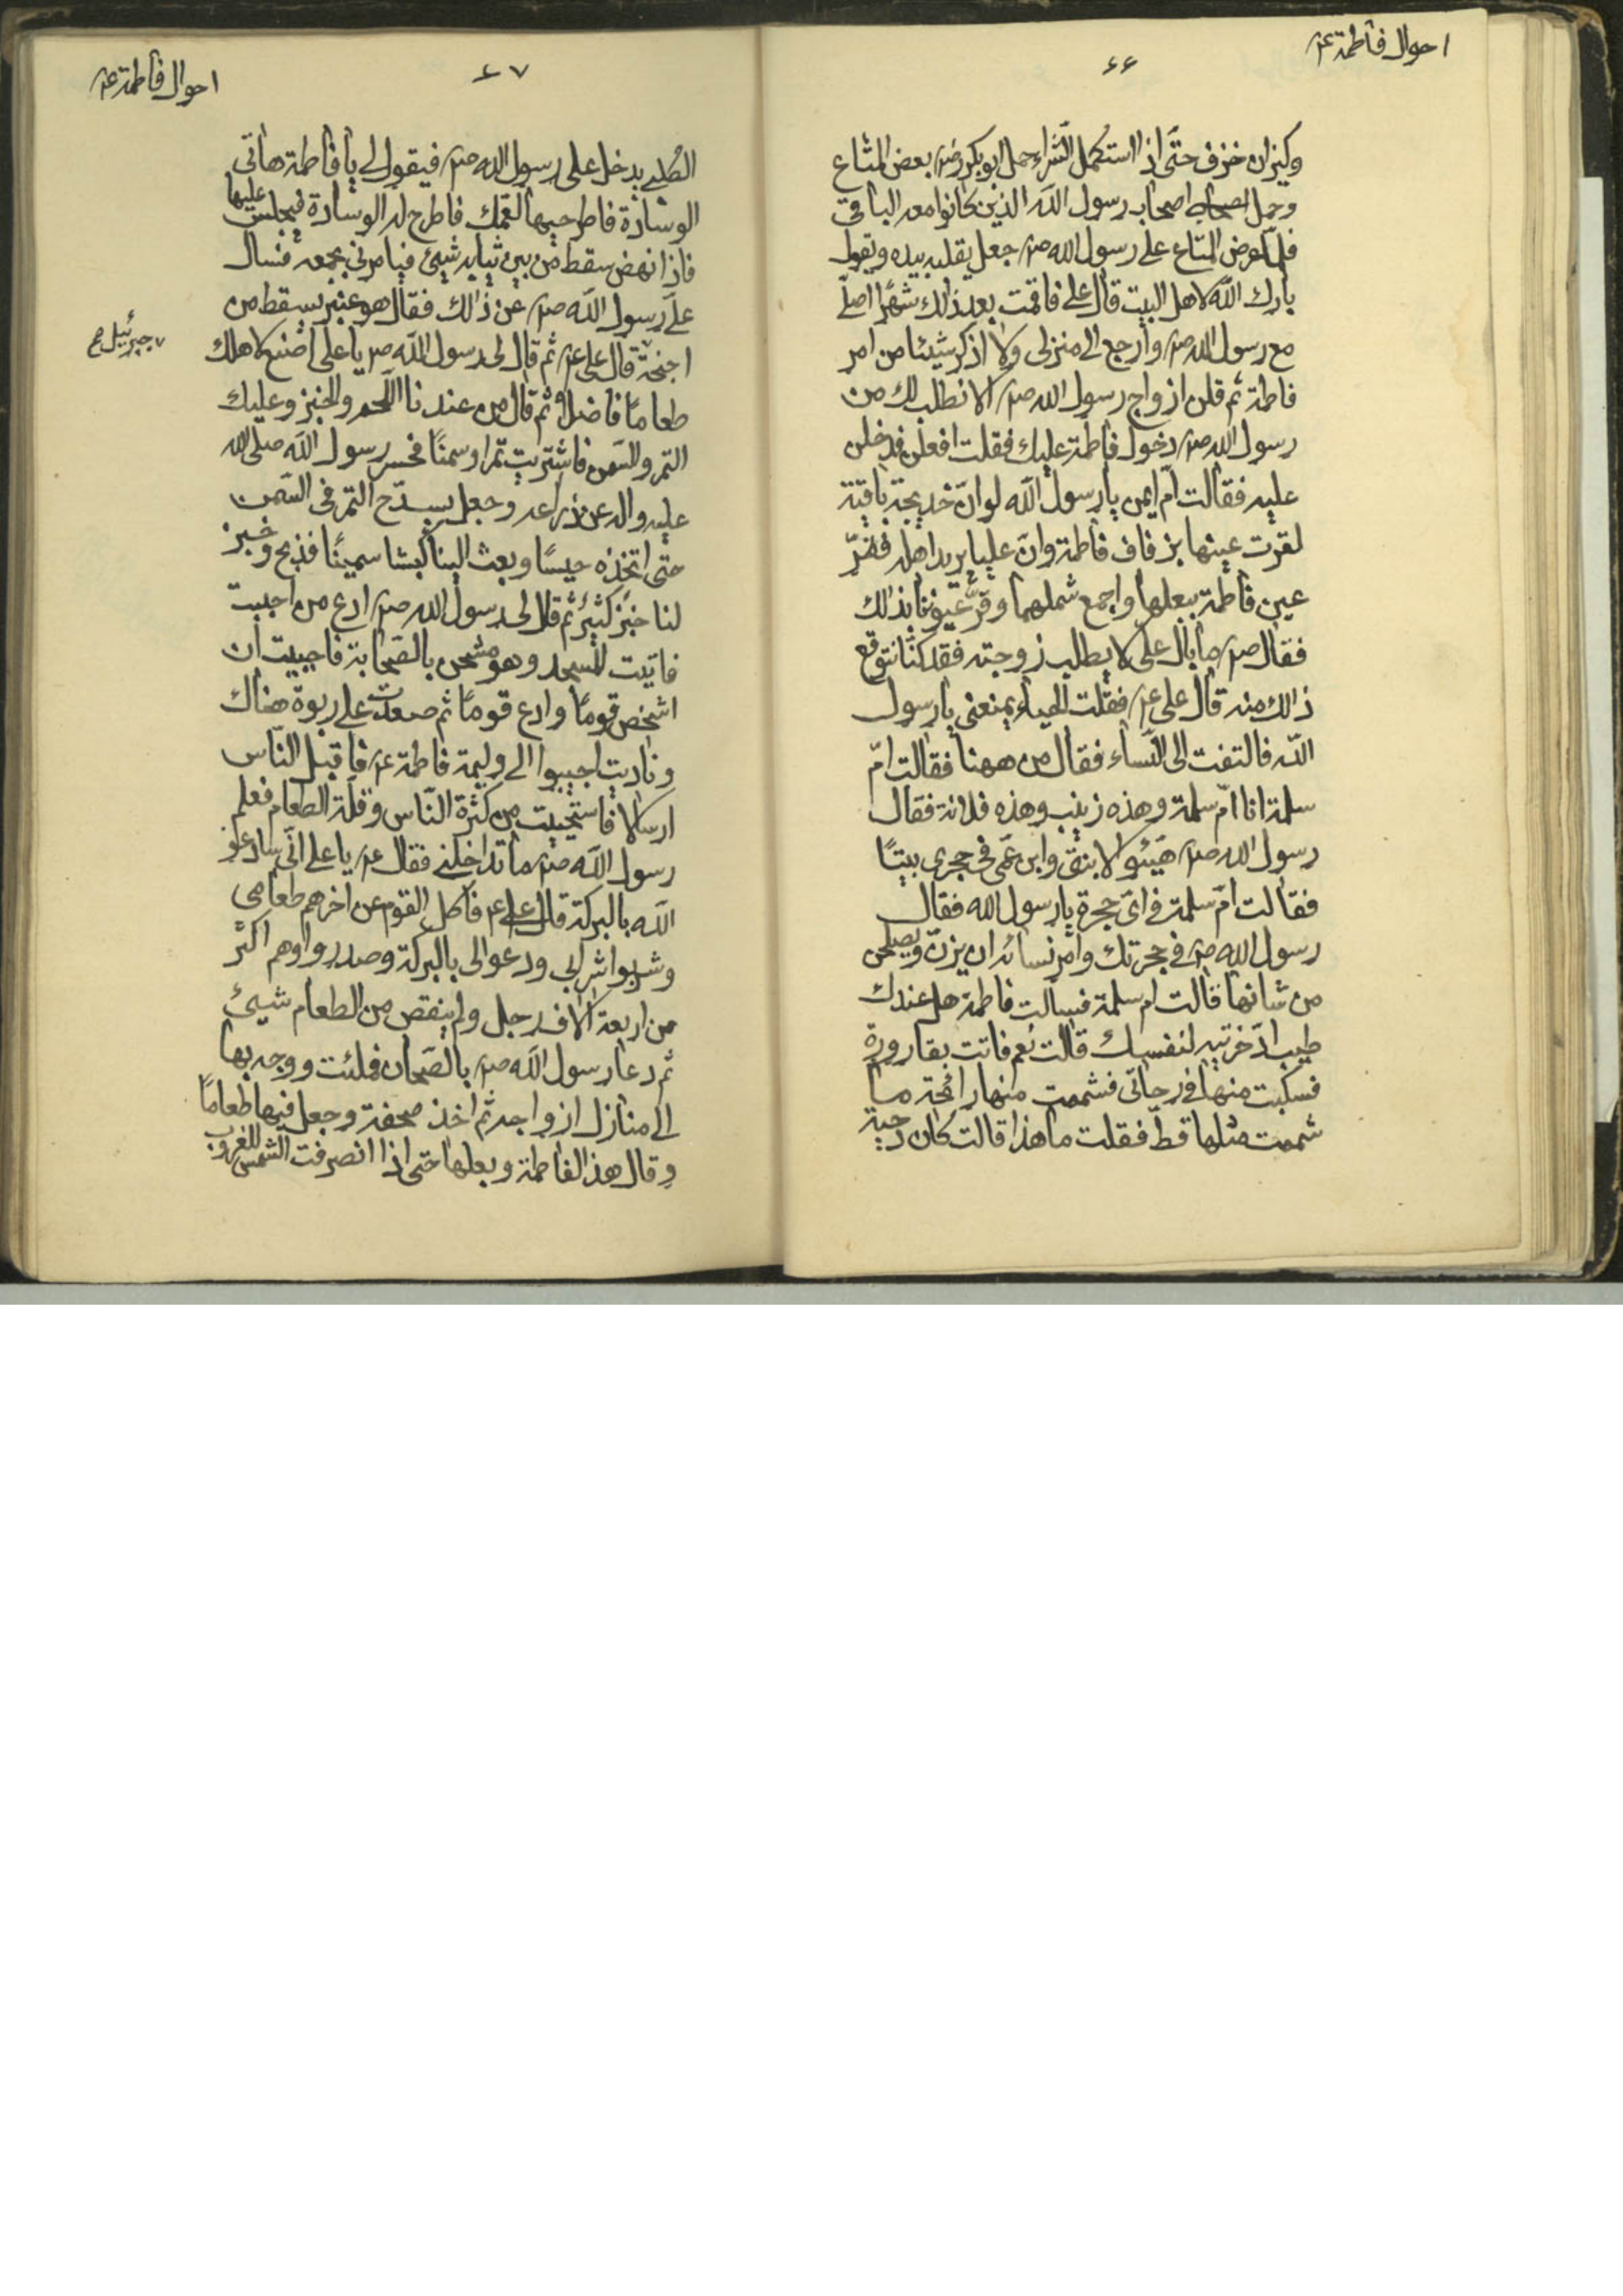 احوال فاطمة ع
٤٦
وكيزان خزف حتّى اذا استكمل الشراء حمل ابو بكر رض بعض المتاع
وحمل اصحاب رسول الله الذين كانوا معه الباقي
فلمّا عرض المتاع على رسول الله ص جعل يقلبه بيده ويقول
بارك الله لاهل البيت قال علي فاقمت بعد ذالك شهرًا اصلّي
مع رسول الله ص وارجع الى منزلى ولا اذكر شيئا من امر
فاطمة ثم قلن ازواج رسول الله ص الا نطلب لك من
رسول الله ص دخول فاطمة عليك فقلت افعلن فدخلن
عليه فقالت امّ ايمن يا رسول الله لو انّ خديجة باقية
لقرّت عينها بزفاف فاطمة وانّ عليا يريد اهله فقرّ
عين فاطمة ببعلها واجمع شملهما وقرّ عيوننا بذالك
فقال ص ما بال على لا يطلب زوجته فقد كنّا نتوقع
ذالك منه قال على ع فقلت الحياء يمنعنى يا رسول
الله فالتفت الى النّساء فقال من ههنا فقالت امّ
سلمة انا امّ سلمة وهذه زينب وهذه فلانة فقال
رسول الله ص هيّئوا لابنتى وابن عمّى فى حجرى بيتًا
فقالت امّ سلمة فى اىّ حجرة يا رسول الله فقال
رسول الله ص فى حجرتك وامر نسائه ان يزينّ ويصلحن
من شانها قالت ام سلمة فسالت فاطمة هل عندك
طيب ادّخرتيه لنفسك قالت نعم فاتت بقارورة
فسكبت منها فى راحتى فشممت منها رائحة ما
شممت مثلها قطّ فقلت ما هذا قالت كان دحية
احوال فاطمة ع
٤٧
الكلبي يدخل على رسول الله ص فيقول لى يا فاطمة هاتى
الوسادة فاطرحيها لعمك فاطرح له الوسادة فيجلس عليها
فاذا نهض سقط من بين ثيابه شيئ فيامرني بجمعه فسال
علي رسول الله ص عن ذالك فقال هو عنبر يسقط من
اجنحة قال على ع ثم قال لى رسول الله ص يا على اصنع لاهلك
جبرئيل ع
طعامًا فاضلا ثم قال من عندنا اللّحم والخبز وعليك
التمر والسّمن فاشتريت تمرا وسمنًا فحسر رسول الله صلى الله
عليه واله عن ذراعه وجعل يسدّح التمر فى السّمن
حتى اتخذه حيسًا وبعث الينا كبشا سمينًا فذبح وخبز
لنا خبز كثير ثم قال لى رسول الله ص ادع من احببت
فاتيت المسجد وهو مشحن بالصّحابة فاحييت ان
اشخص قومًا وادع قومًا ثم صعدت على ربوة هناك
وناديت اجيبوا الى وليمة فاطمة ع فاقبل النّاس
ارسالا فاستحييت من كثرة النّاس وقلّة الطعام فعلم
رسول الله ص ما تداخلنى فقال ع يا على انّى سادعو
الله بالبركة قال على ع فاكل القوم عن اخرهم طعامى
وشربوا شرابى ودعوا لى بالبركة وصدروا وهم اكثر
من اربعة الاف رجل ولم ينقص من الطعام شيئ
ثم دعا رسول الله ص بالصّحان فملئت ووجه بها
الى منازل ازواجه ثم اخذ صحفة وجعل فيها طعامًا
وقال هذا لفاطمة وبعلها حتى اذا انصرفت الشمس للغروب